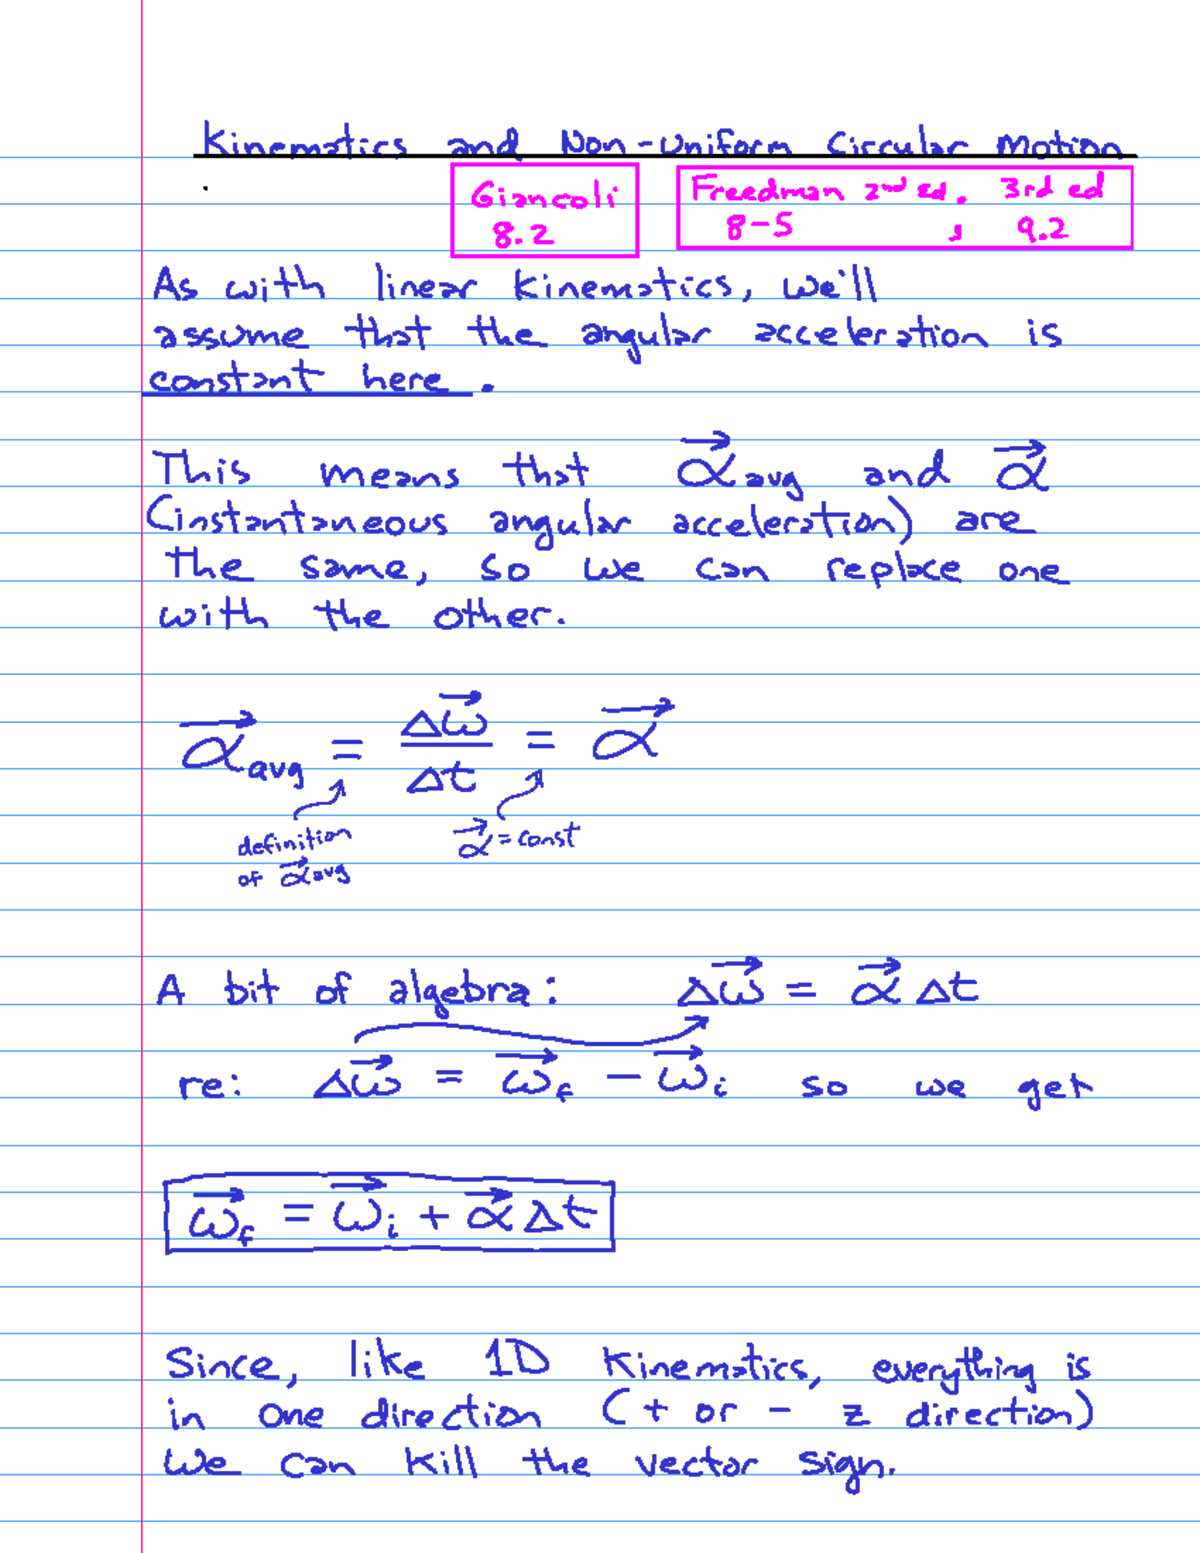 Kinematics and Non-Uniform Circular Motion
Giancoli
8.2
Freedman 2nd ed. 3rd ed
8-5 , 9.2
As with linear kinematics, we'll
assume that the angular acceleration is
constant here.
This means that α⃗avg and α⃗
(instantaneous angular acceleration) are
the same, so we can replace one
with the other.
α⃗avg = Δω⃗/Δt = α⃗
definition
of α⃗avg
α⃗ = const
A bit of algebra: Δω⃗ = α⃗ Δt
re: Δω⃗ = ω⃗f - ω⃗i so we get
ω⃗f = ω⃗i + α⃗ Δt
Since, like 1D Kinematics, everything is
in one direction (+ or - z direction)
we can kill the vector sign.